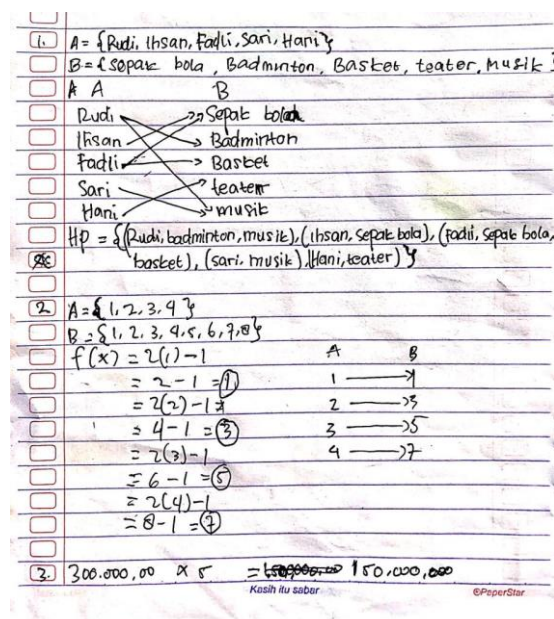 1. A = {Rudi, Ihsan, Fadli, Sari, Hani}
B = {Sepak bola, Badminton, Basket, teater, Musik}
A A B
Rudi Sepak bola
Ihsan Badminton
Fadli Basket
Sari teater
Hani musik
HP = {(Rudi, badminton, musik), (Ihsan, sepak bola), (Fadli, sepak bola,
basket), (sari, musik), (Hani, teater)}
2 A = {1, 2, 3, 4}
B = {1, 2, 3, 4, 5, 6, 7, 8}
f(x) = 2(1) - 1 A B
= 2 - 1 = 1 1 1
= 2(2) - 1 2 3
= 4 - 1 = 3 3 5
= 2(3) - 1 4 7
= 6 - 1 = 5
= 2(4) - 1
= 8 - 1 = 7
3. 300.000,00 x 5 = 150,000,000
Kasih itu sabar ©PaperStar